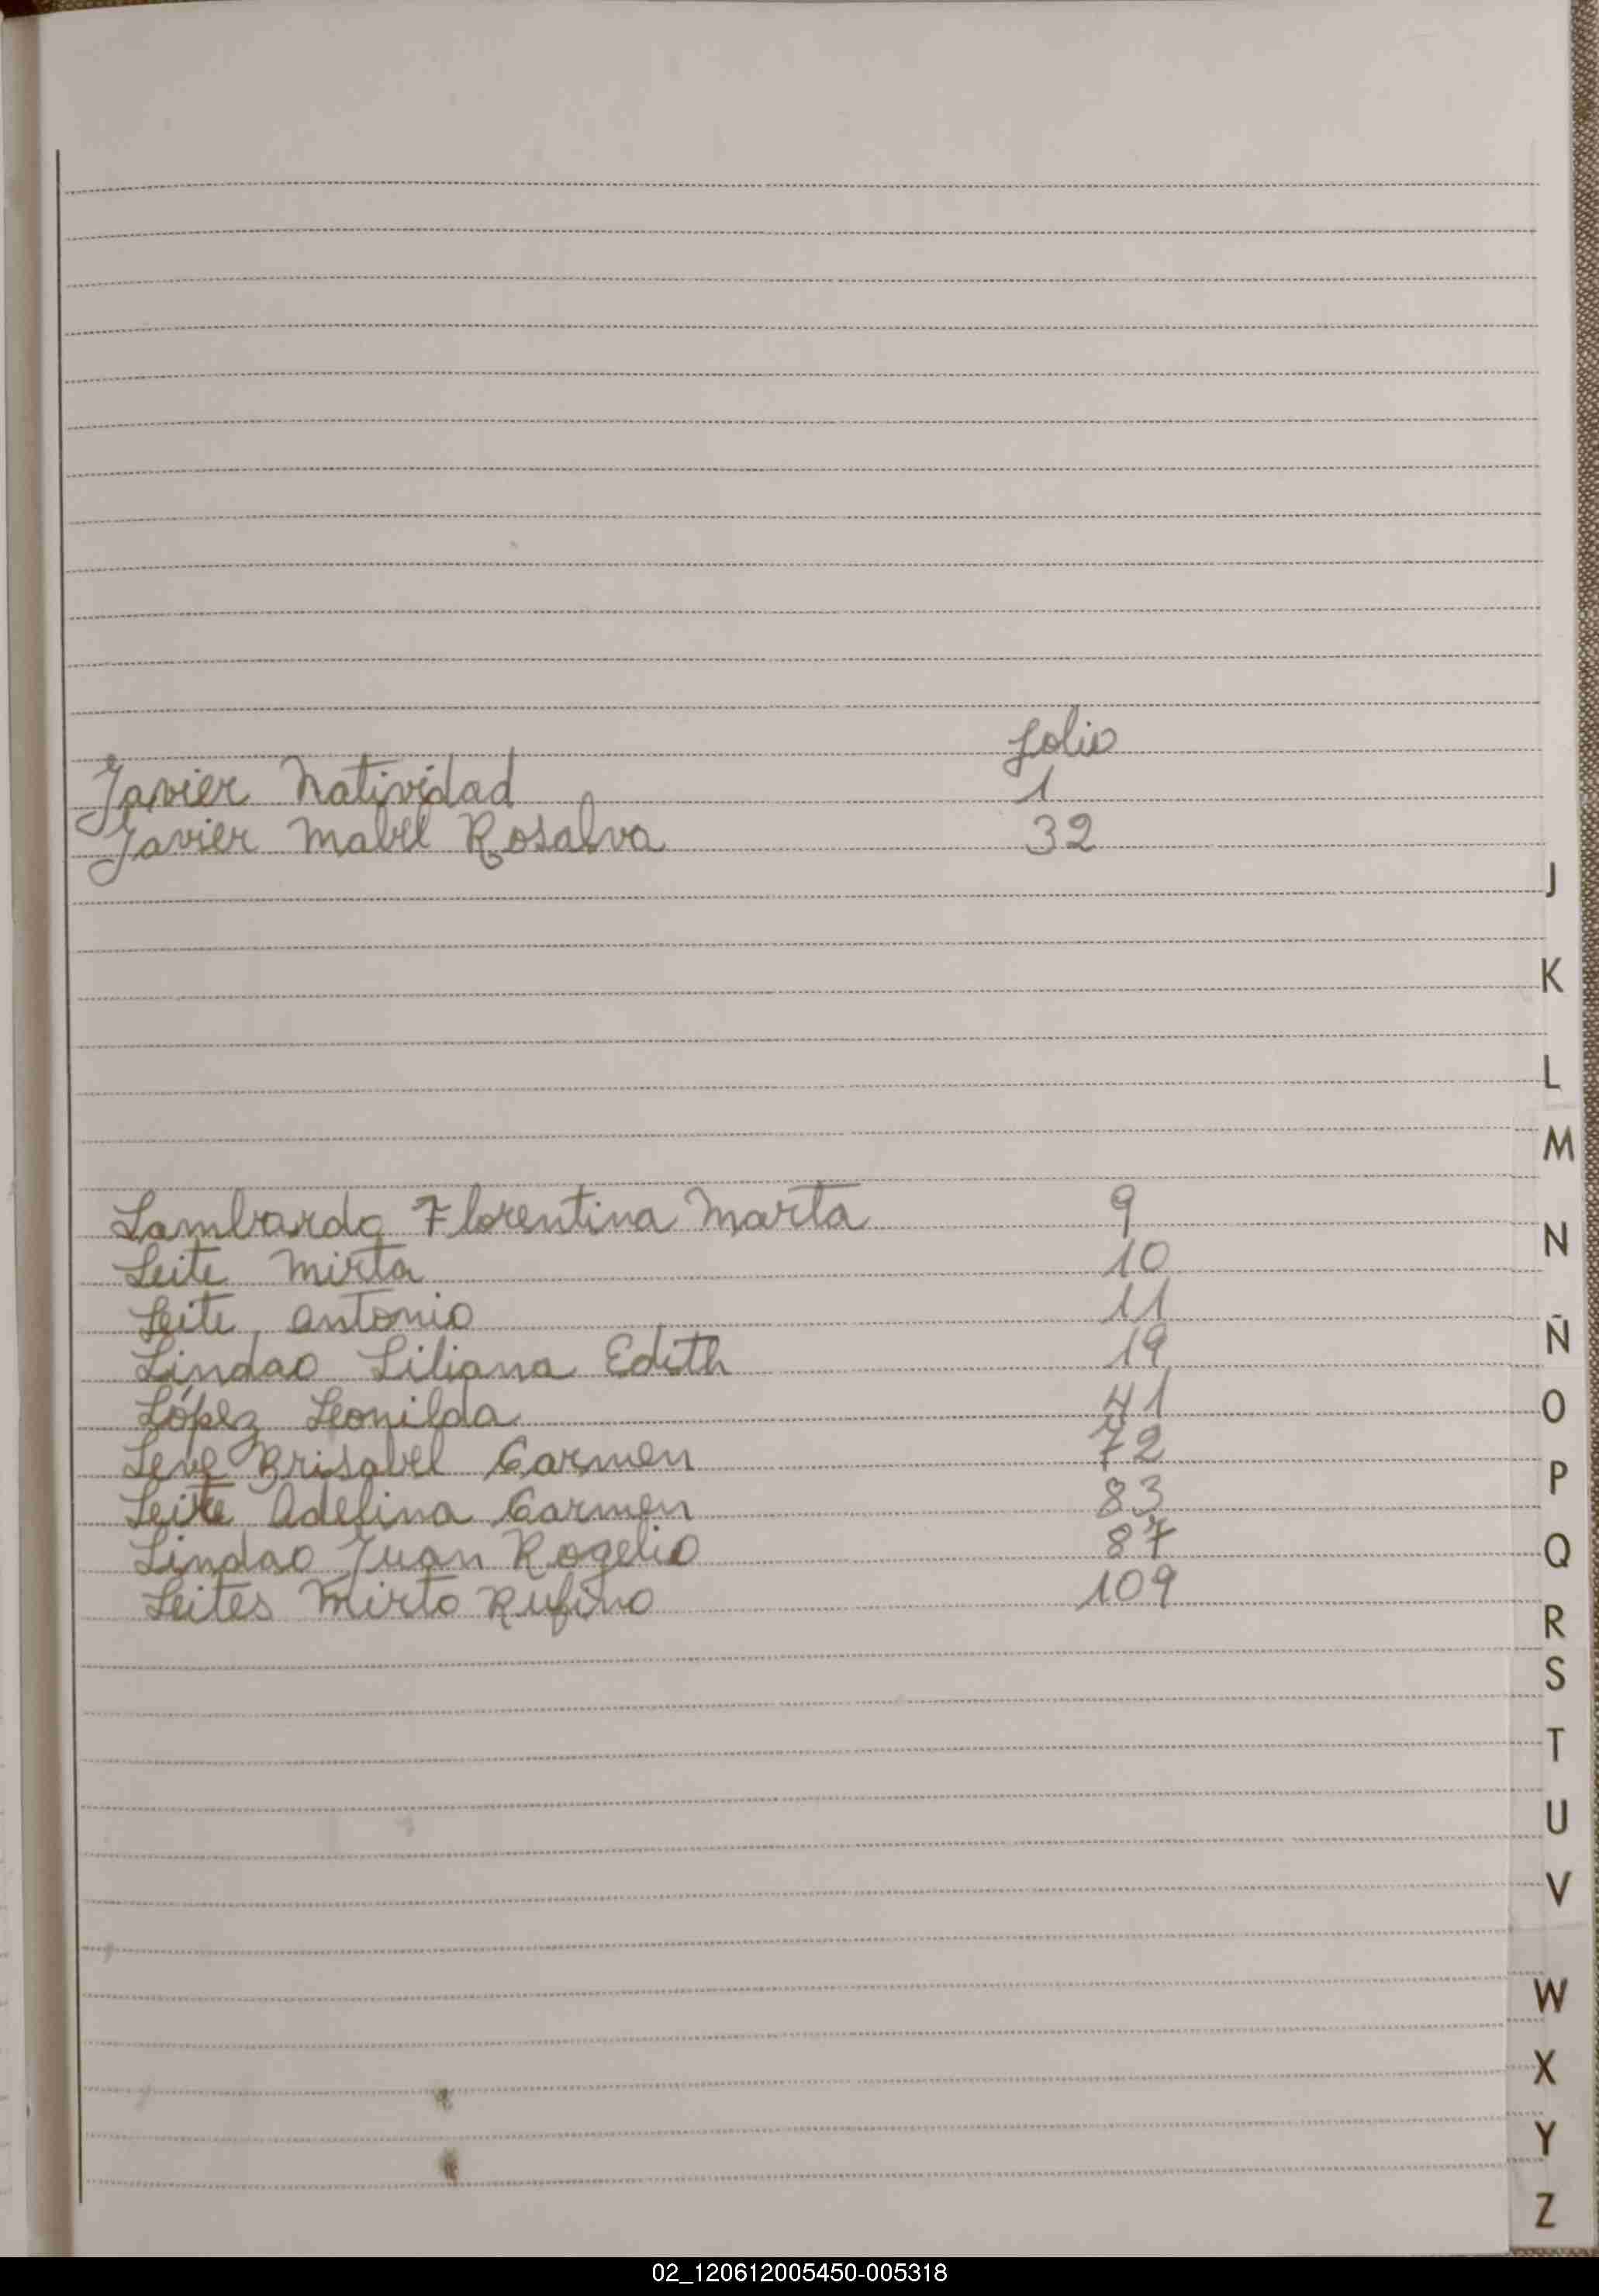 folio
Javier Natividad 1
Javier Mabel Rosalva 32
J
K
L
M
Lambardo Florentina Marta 9
N
Leite Mirta 10
Leite Antonio 11
Ñ
Lindao Liliana Edith 19
López Leonilda 41
O
Leve Brisabel Carmen 72
P
Leite Adelina Carmen 83
Lindao Juan Rogelio 87
Q
Leites Mirto Rufino 109
R
S
T
U
V
W
X
Y
Z
02_120612005450-005318